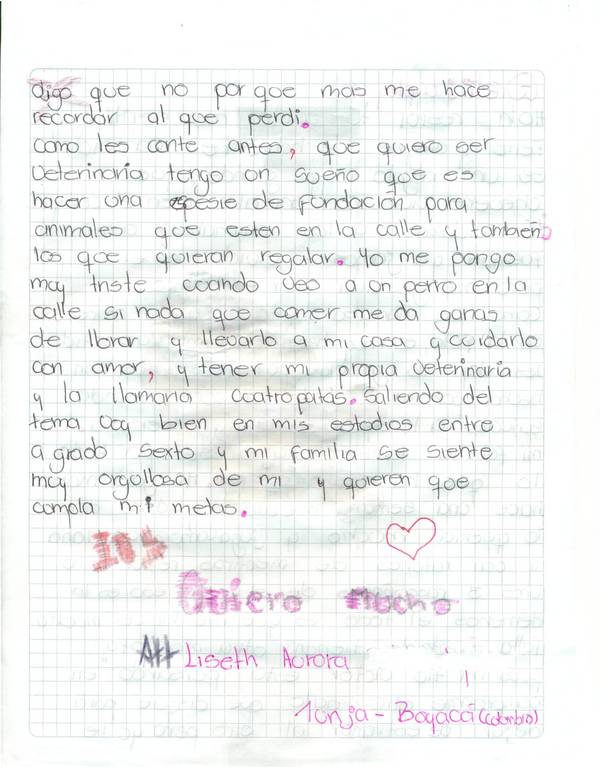 digo que no por que mas me hace
recordar al que perdi.
como les conte antes, que quiero ser
veterinaria tengo un sueño que es
hacer una espesie de fundación para
animales que esten en la calle y tambien
los que quieran regalar. Yo me pongo
muy triste cuando veo a un perro en la
calle si nada que comer me da ganas
de llorar y llevarlo a mi casa y cuidarlo
con amor, y tener mi propia veterinaria
y la llamaria cuatropatas. Saliendo del
tema voy bien en mis estudios entre
a grado sexto y mi familia se siente
muy orgullosa de mi y quieren que
cumpla mi metas.
los
Quiero mucho
Att Liseth Aurora
Tunja - Boyacá (colombia)